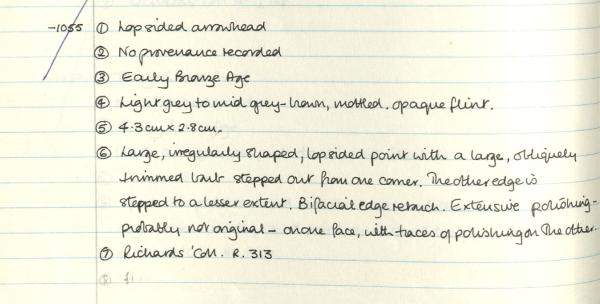 -1055 ① Lopsided arrowhead
② No provenance recorded
③ Early Bronze Age
④ Light grey to mid grey-brown, mottled. opaque flint.
⑤ 4.3cm x 2.8cm.
⑥ Large, irregularly shaped, lopsided point with a large, obliquely
trimmed barb stepped out from one corner. The other edge is
stepped to a lesser extent. Bifacial edge retouch. Extensive polishing -
probably not original - on one face, with traces of polishing on the other.
⑦ Richards' Coll. R. 313
⑧